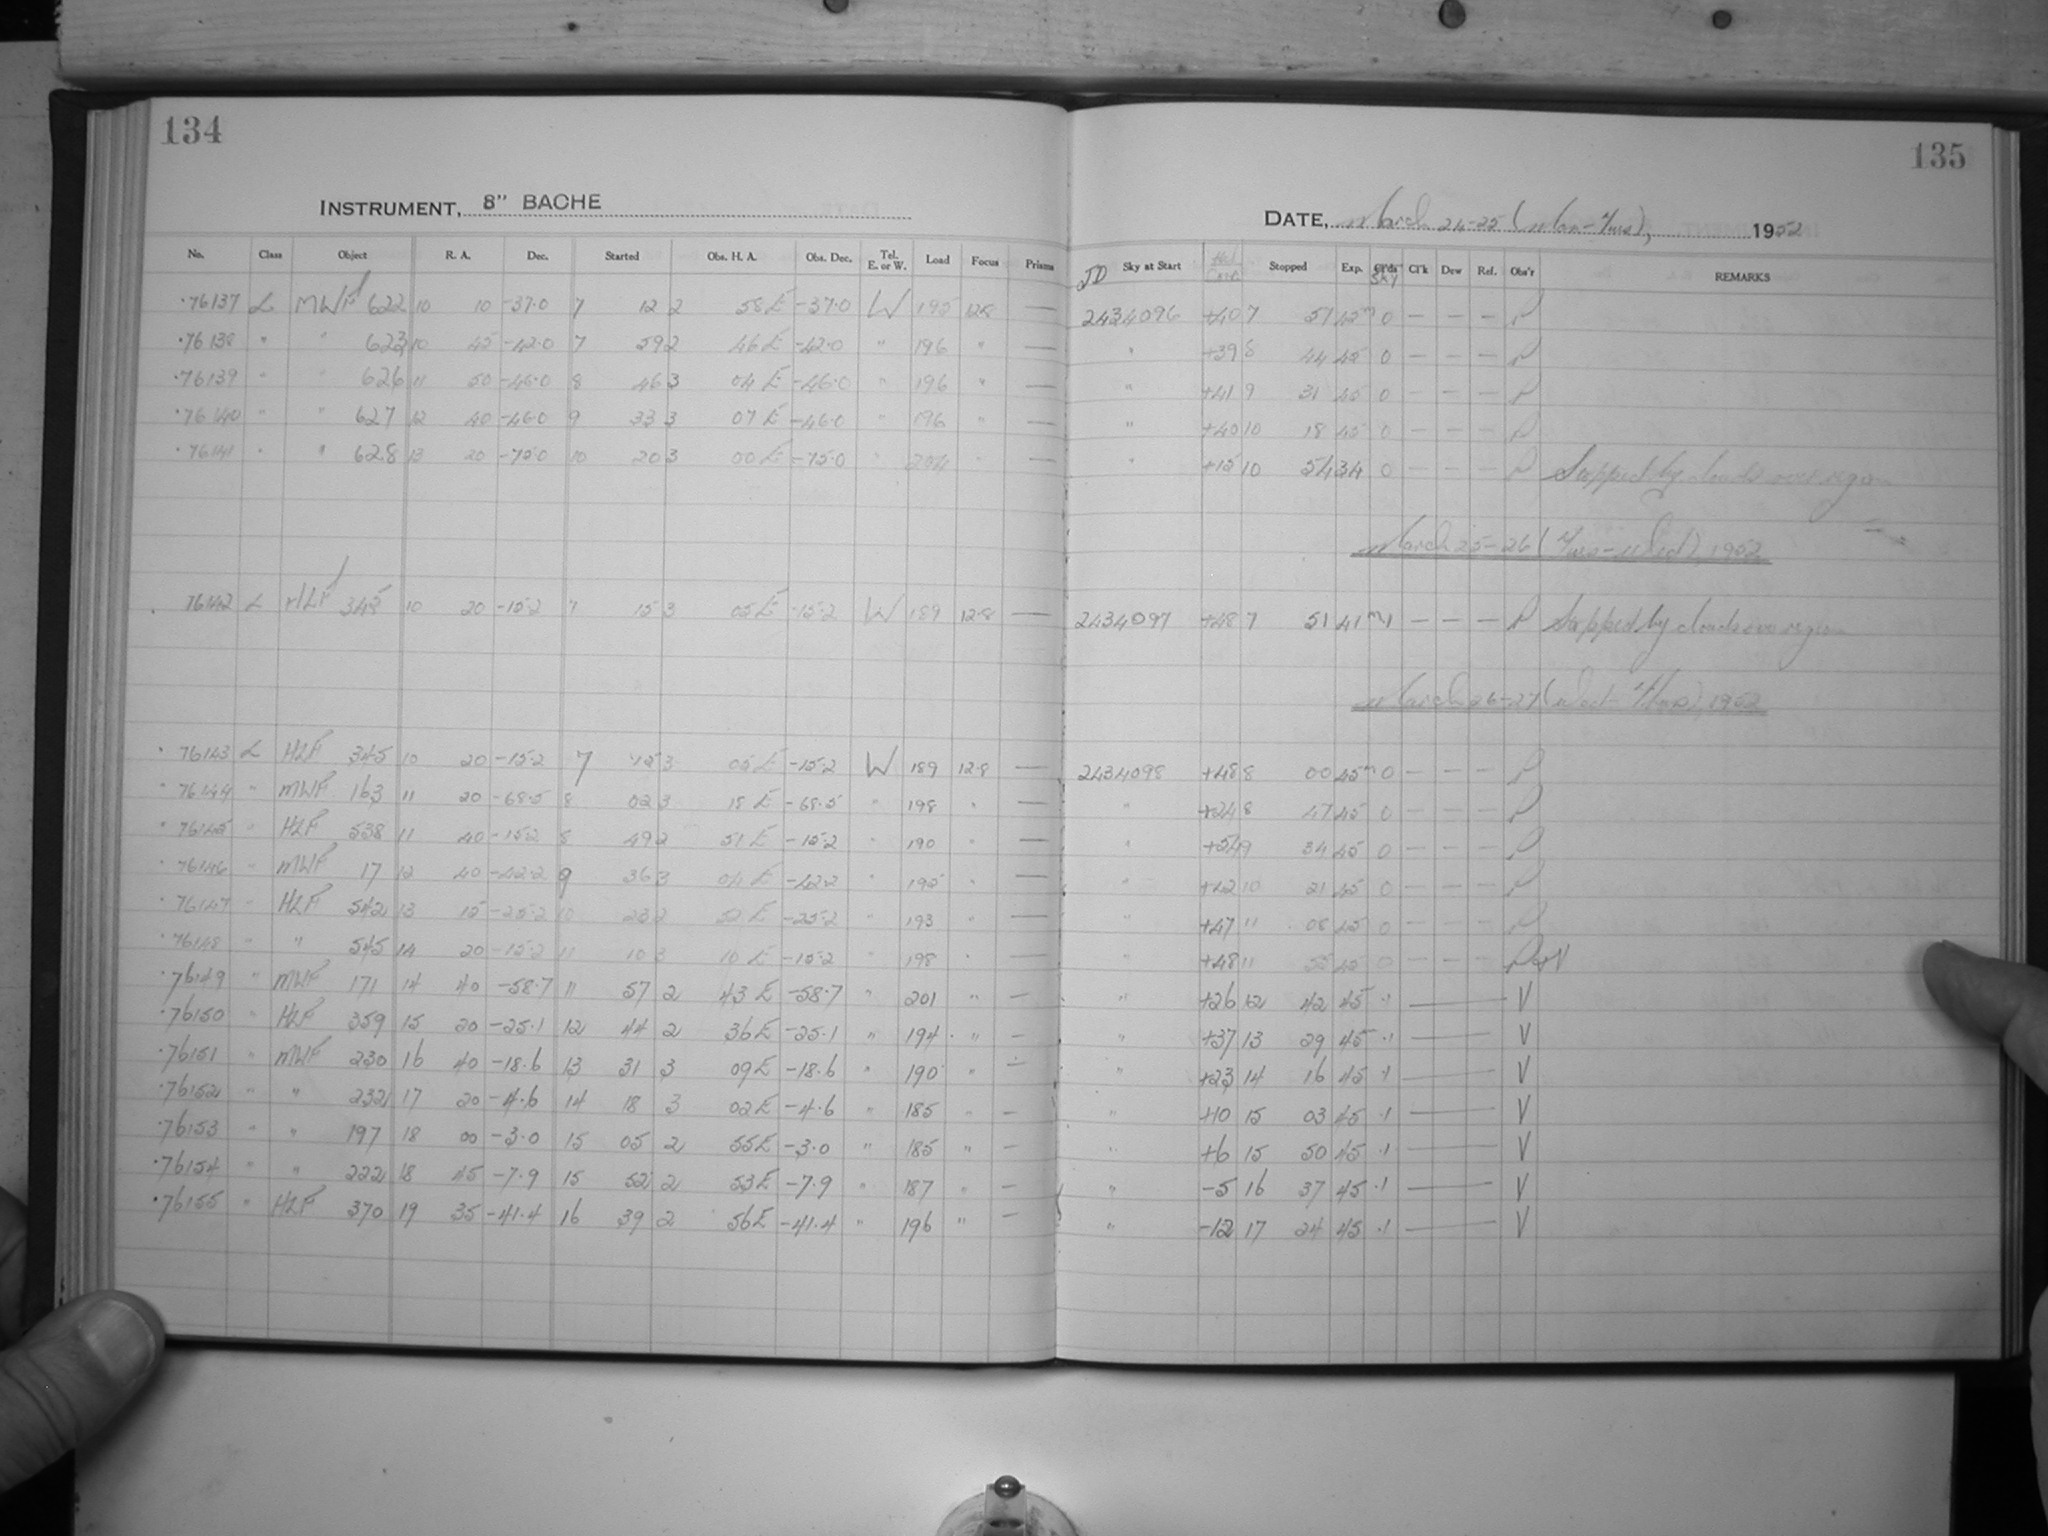 134
INSTRUMENT, 8" BACHE
No. Class Object R. A. Dec. Started Obs. H. A. Obs. Dec. Tel. E. or W. Load Focus Prisms
76137 L MWF 622 10 10 -37.0 7 12 2 58E -37.0 W 195 12.8 —
76138 " " 623 10 45 -42.0 7 59 2 46E -42.0 " 196 " —
76139 " " 626 11 50 -46.0 8 46 3 04E -46.0 " 196 " —
76140 " " 627 12 40 -46.0 9 33 3 07E -46.0 " 196 " —
76141 " " 628 13 20 -75.0 10 20 3 00E -75.0 " 204 " —
76142 L HLF 345 10 20 -15.2 7 15 3 05E -15.2 W 189 12.8 —
76143 L HLF 345 10 20 -15.2 7 15 3 05E -15.2 W 189 12.8 —
76144 " MWF 163 11 20 -68.5 8 02 3 18E -68.5 " 198 " —
76145 " HLF 538 11 40 -15.2 8 49 2 51E -15.2 " 190 " —
76146 " MWF 17 12 40 -42.2 9 36 3 04E -42.2 " 195 " —
76147 " HLF 542 13 15 -25.2 10 23 2 52E -25.2 " 193 " —
76148 " " 545 14 20 -15.2 11 10 3 10E -15.2 " 198 " —
76149 " MWF 171 14 40 -58.7 11 57 2 43E -58.7 " 201 " —
76150 " HLF 359 15 20 -25.1 12 44 2 36E -25.1 " 194 " —
76151 " MWF 230 16 40 -18.6 13 31 3 09E -18.6 " 190 " —
76152 " " 232 17 20 -4.6 14 18 3 02E -4.6 " 185 " —
76153 " " 197 18 00 -3.0 15 05 2 55E -3.0 " 185 " —
76154 " " 222 18 45 -7.9 15 52 2 53E -7.9 " 187 " —
76155 " HLF 370 19 35 -41.4 16 39 2 56E -41.4 " 196 " —
135
DATE, March 24-25 (Mon-Tues), 1952
JD Sky at Start Hel. Corr. Stopped Exp. Sky Cl'k Dew Ref. Obs'r REMARKS
2434096 +40 7 57 45m 0 — — — P
" +39 8 44 45 0 — — — P
" +41 9 31 45 0 — — — P
" +40 10 18 45 0 — — — P
" +15 10 54 34 0 — — — P Stopped by clouds over region
March 25-26 (Tues-Wed), 1952
2434097 +48 7 51 41m 1 — — — P Stopped by clouds over region
March 26-27 (Wed-Thurs), 1952
2434098 +48 8 00 45m 0 — — — P
" +24 8 47 45 0 — — — P
" +54 9 34 45 0 — — — P
" +42 10 21 45 0 — — — P
" +47 11 08 45 0 — — — P
" +48 11 55 45 0 — — — P+V
" +26 12 42 45 .1 — V
" +37 13 29 45 .1 — V
" +23 14 16 45 .1 — V
" +10 15 03 45 .1 — V
" +6 15 50 45 .1 — V
" -5 16 37 45 .1 — V
" -12 17 24 45 .1 — V